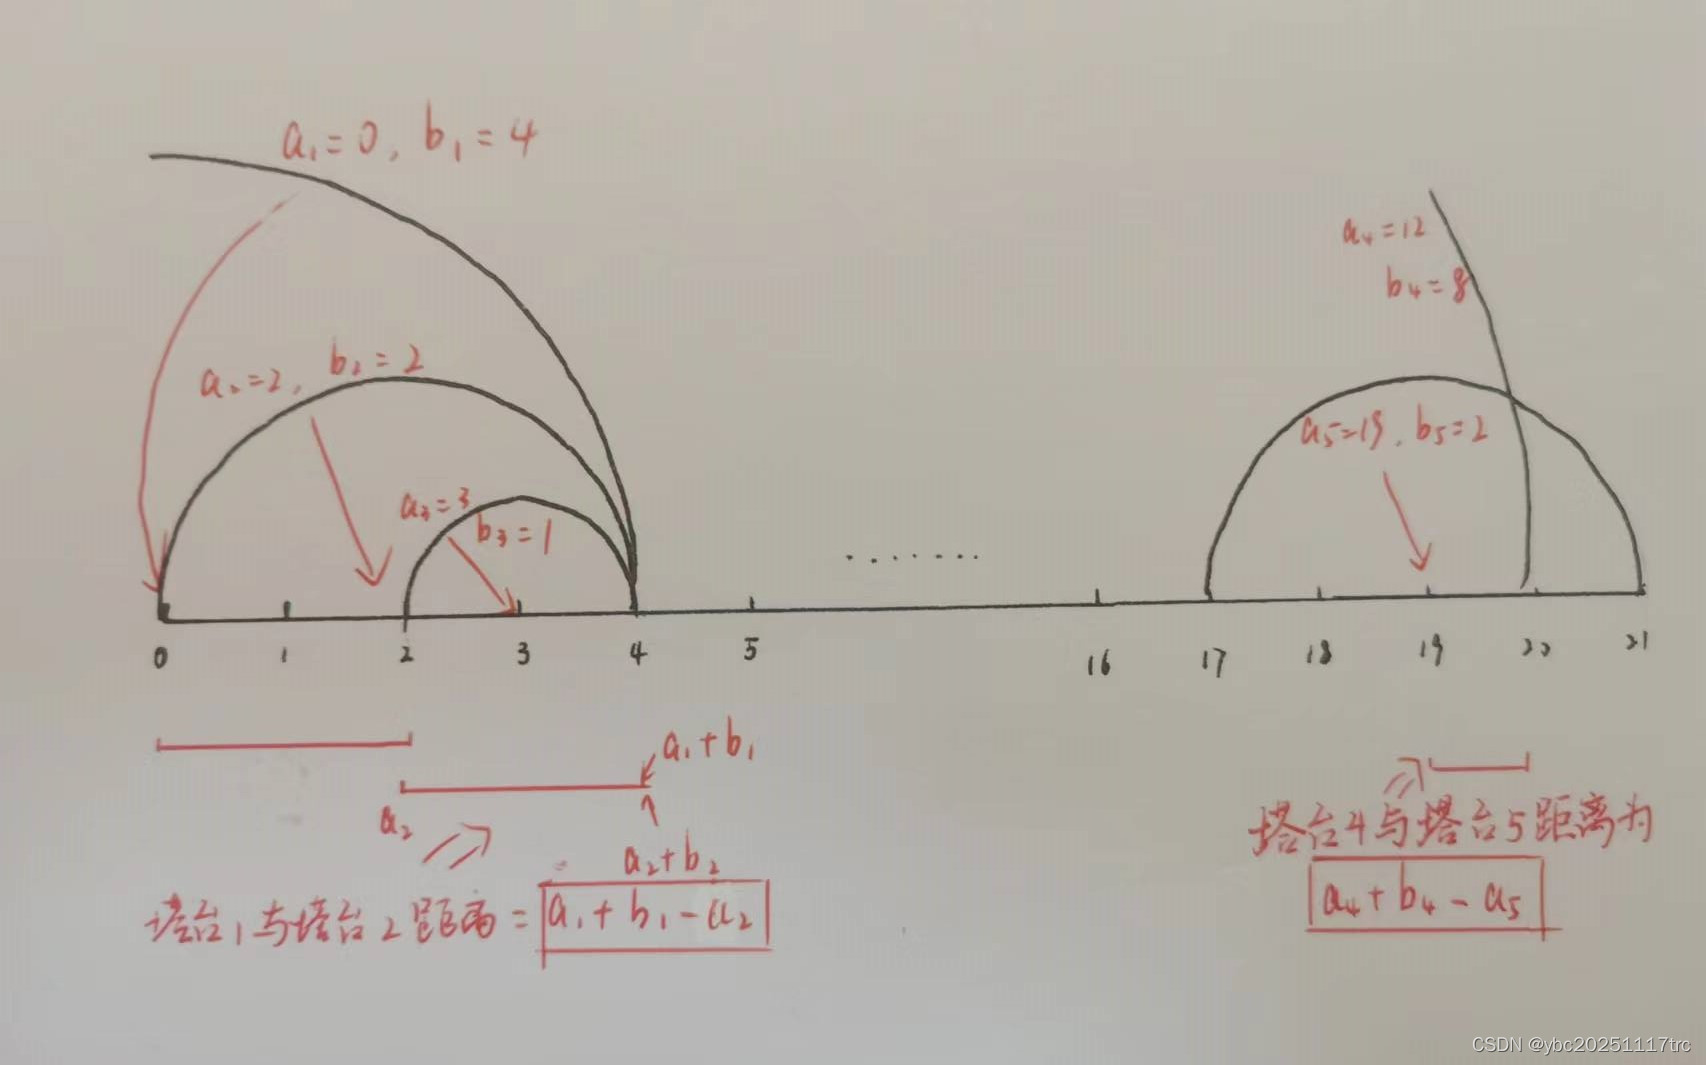 a₁=0, b₁=4
a₄=12
b₄=8
a₂=2, b₂=2
a₅=19, b₅=2
a₃=3
b₃=1
.......
0 1 2 3 4 5 16 17 18 19 20 21
a₁+b₁
a₂
a₂+b₂
塔台1与塔台2距离=a₁+b₁-a₂
塔台4与塔台5距离为
a₄+b₄-a₅
CSDN @ybc20251117trc